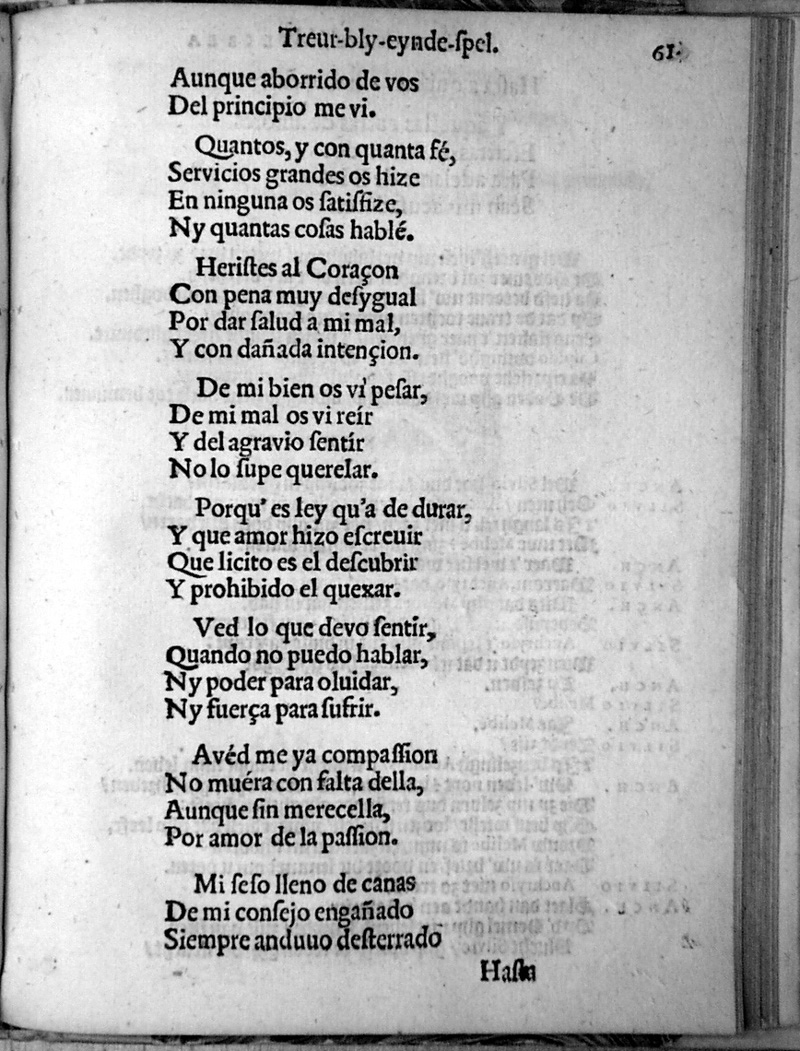 Treur-bly-eynde-ſpel.
61.
Aunque aborrido de vos
Del principio me vi.
Quantos, y con quanta fé,
Servicios grandes os hize
En ninguna os ſatiſfize,
Ny quantas coſas hablé.
Heriſtes al Coraçon
Con pena muy deſygual
Por dar ſalud a mi mal,
Y con dañada intençion.
De mi bien os vi peſar,
De mi mal os vi reír
Y del agravio ſentír
No lo ſupe querelar.
Porqu' es ley qu'a de durar,
Y que amor hizo eſcreuir
Que licito es el deſcubrir
Y prohibido el quexar.
Ved lo que devo ſentír,
Quando no puedo hablar,
Ny poder para oluidar,
Ny fuerça para ſufrir.
Avéd me ya compaſſion
No muéra con falta della,
Aunque ſin merecella,
Por amor de la paſſion.
Mi ſeſo lleno de canas
De mi conſejo engañado
Siempre anduuo deſterrado
Haſta